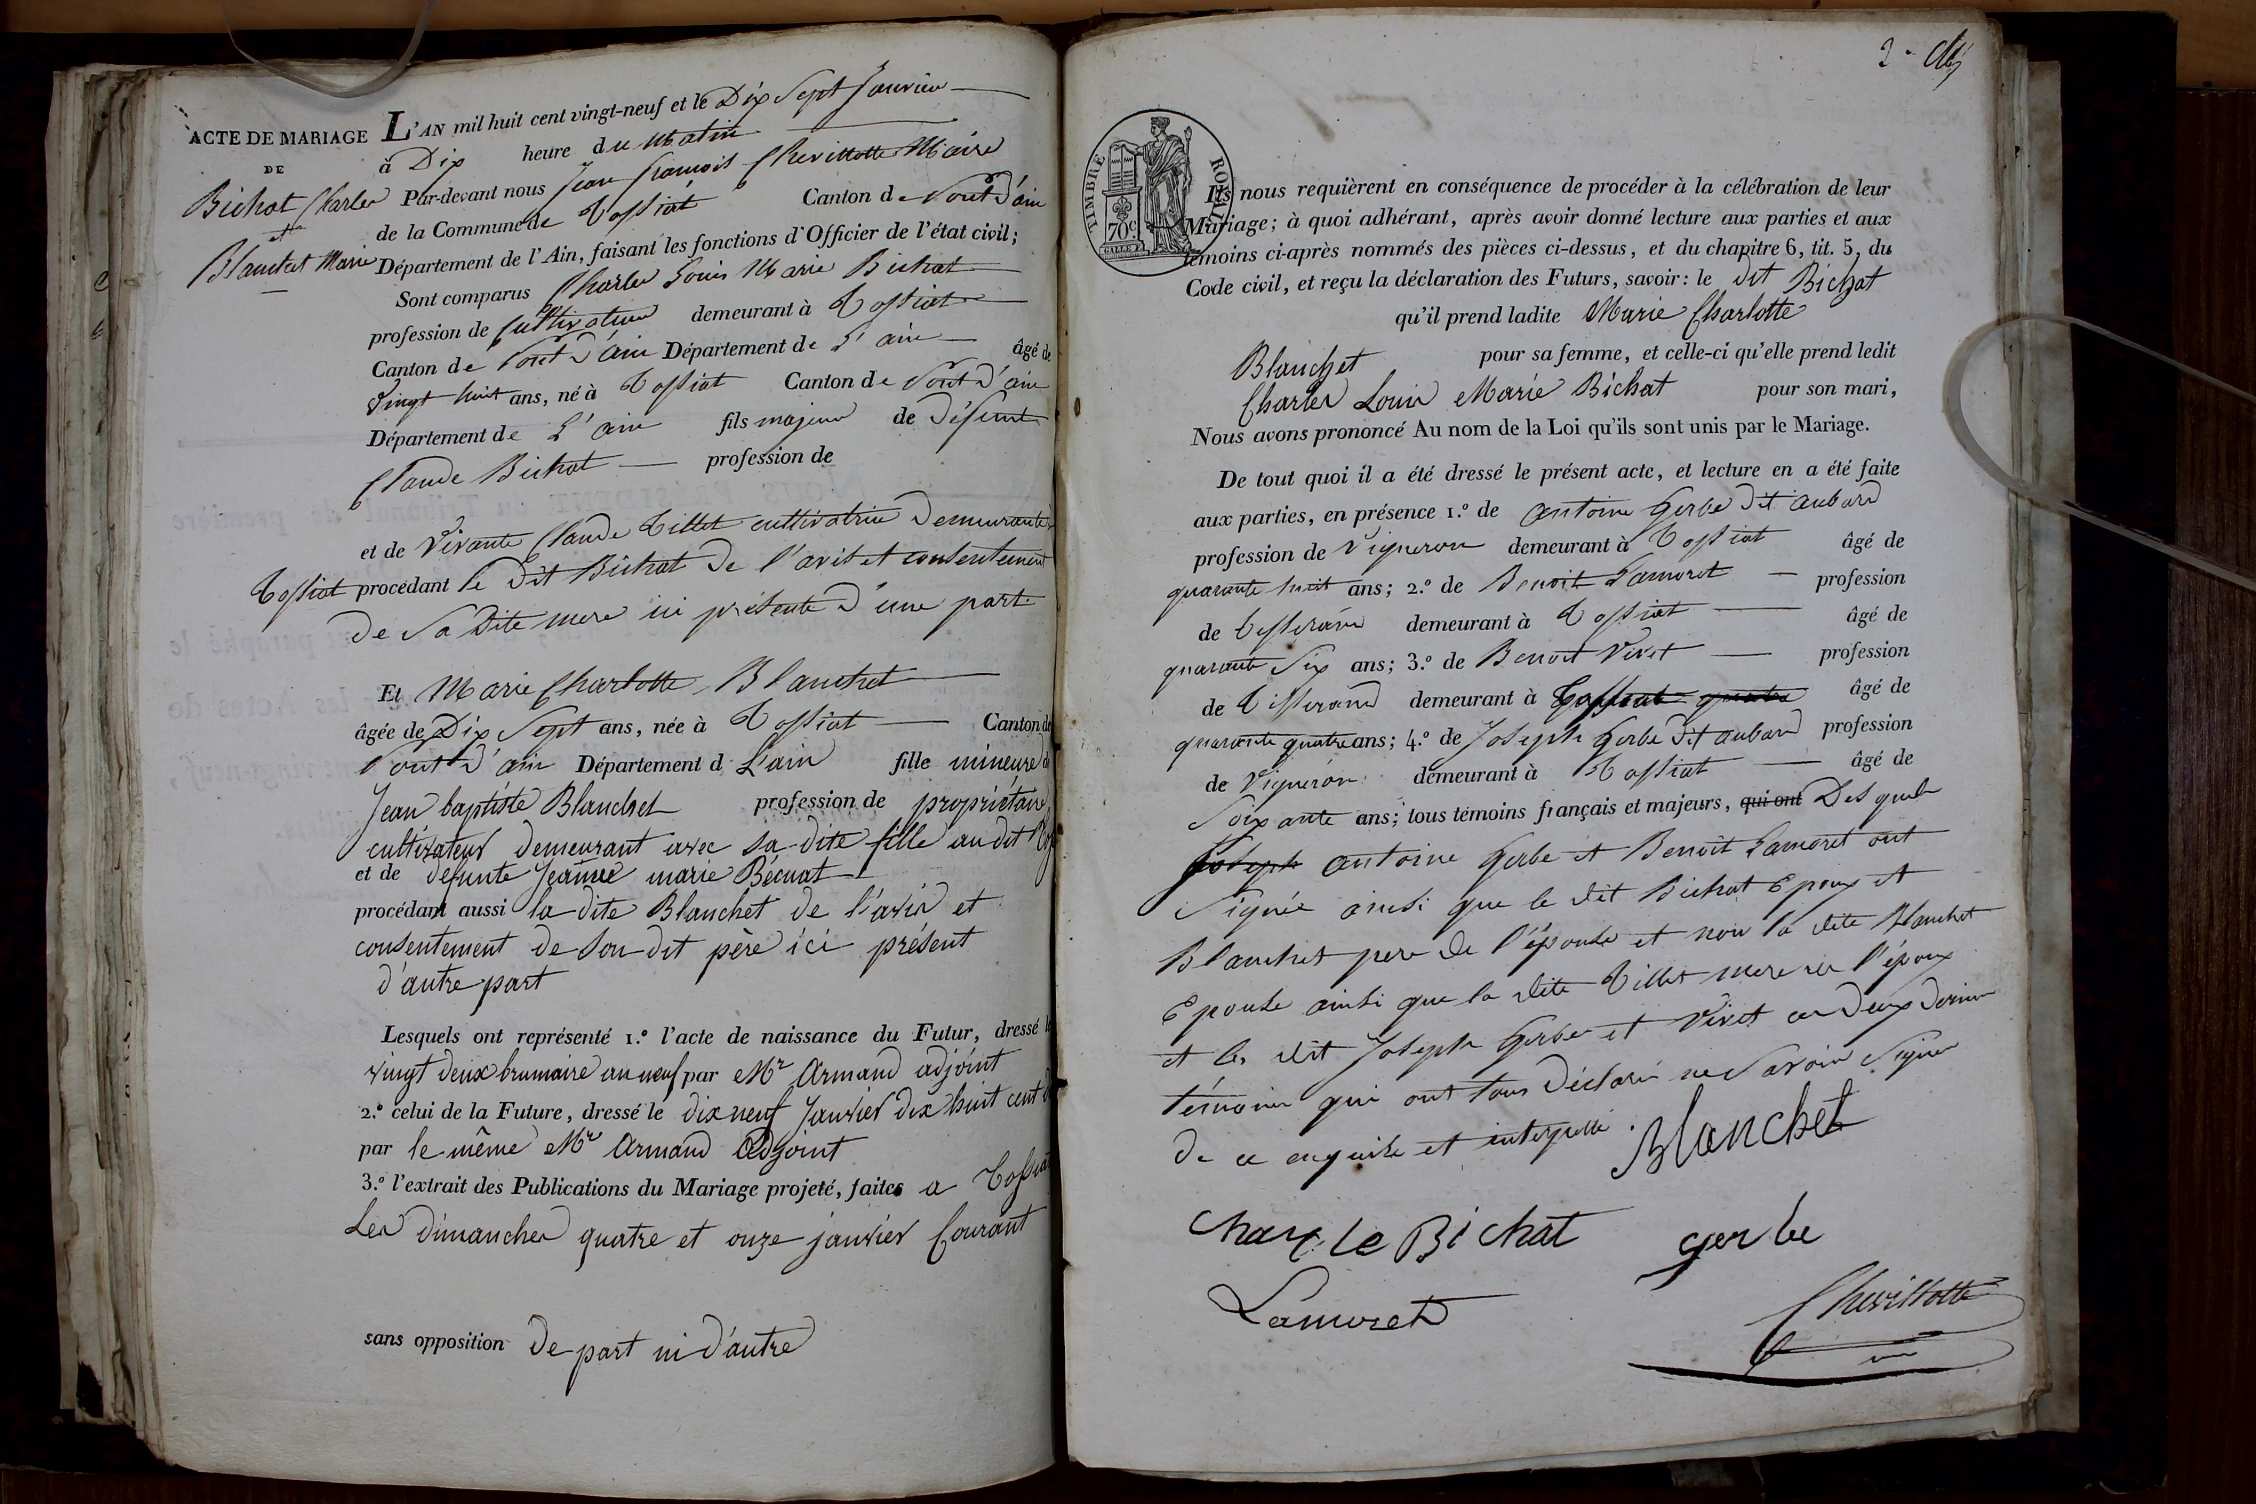 ACTE DE MARIAGE
DE
Bichat Charles
et
Blanchet Marie
L'AN mil huit cent vingt-neuf et le Dix Sept Janvier
à Dix heure du Matin
Par-devant nous Jean François Chevillotte Maire
de la Commune de Tossiat Canton de Pont d'ain
Département de l'Ain, faisant les fonctions d'Officier de l'état civil;
Sont comparus Charles Louis Marie Bichat
profession de Cultivateur demeurant à Tossiat
Canton de Pont d'ain Département de L'ain âgé de
vingt huit ans, né à Tossiat Canton de Pont d'ain
Département de L'ain fils majeur de défunt
Claude Bichat profession de
et de vivante Claude Tillet cultivatrice Demeurante
Tossiat procédant le dit Bichat de l'avis et consentement
de Sa Dite mere ici présente d'une part
Et Marie Charlotte Blanchet
âgée de Dix Sept ans, née à Tossiat Canton de
Pont d'ain Département d L'ain fille mineure de
Jean baptiste Blanchet profession de propriétaire
cultivateur demeurant avec sa dite fille au dit
et de defunte Jeanne marie Bécuat
procédant aussi la dite Blanchet de l'avis et
consentement de Son dit père ici présent
d'autre part
Lesquels ont représenté 1.º l'acte de naissance du Futur, dressé le
vingt deux brumaire an neuf par Mr Armand adjoint
2.º celui de la Future, dressé le dix neuf Janvier dix huit cent
par le même Mr Armand Adjoint
3.º l'extrait des Publications du Mariage projeté, faites a Tossiat
Les dimanches quatre et onze janvier Courant
sans opposition de part ni d'autre
2
TIMBRE ROYAL
70c
Ils nous requièrent en conséquence de procéder à la célébration de leur
Mariage; à quoi adhérant, après avoir donné lecture aux parties et aux
témoins ci-après nommés des pièces ci-dessus, et du chapitre 6, tit. 5, du
Code civil, et reçu la déclaration des Futurs, savoir: le dit Bichat
qu'il prend ladite Marie Charlotte
Blanchet pour sa femme, et celle-ci qu'elle prend ledit
Charles Louis Marie Bichat pour son mari,
Nous avons prononcé Au nom de la Loi qu'ils sont unis par le Mariage.
De tout quoi il a été dressé le présent acte, et lecture en a été faite
aux parties, en présence 1.º de antoine Gerbe dit aubard
profession de Vigneron demeurant à Tossiat âgé de
quarante huit ans; 2.º de Benoit Lamoret profession
de tisserand demeurant à Tossiat âgé de
quarante Six ans; 3.º de Benoit Vivet profession
de tisserand demeurant à Tossiat quarante âgé de
quarante quatre ans; 4.º de Joseph Gerbe dit aubard profession
de Vigneron demeurant à Tossiat âgé de
Soixante ans; tous témoins français et majeurs, qui ont Des quels
Joseph antoine Gerbe et Benoit Lamoret ont
Signée ainsi que le dit Bichat Epoux et
Blanchet pere de l'épouse et non la dite Blanchet
Epouse ainsi que la dite Tillet mere de l'époux
et les dit Joseph Gerbe et Vivet ces deux dernier
témoins qui ont tous Déclaré ne Savoir Signer
de ce enquise et interpellé.
Blanchet
Charle Bichat
gerbe
Lamoret
Chevillotte